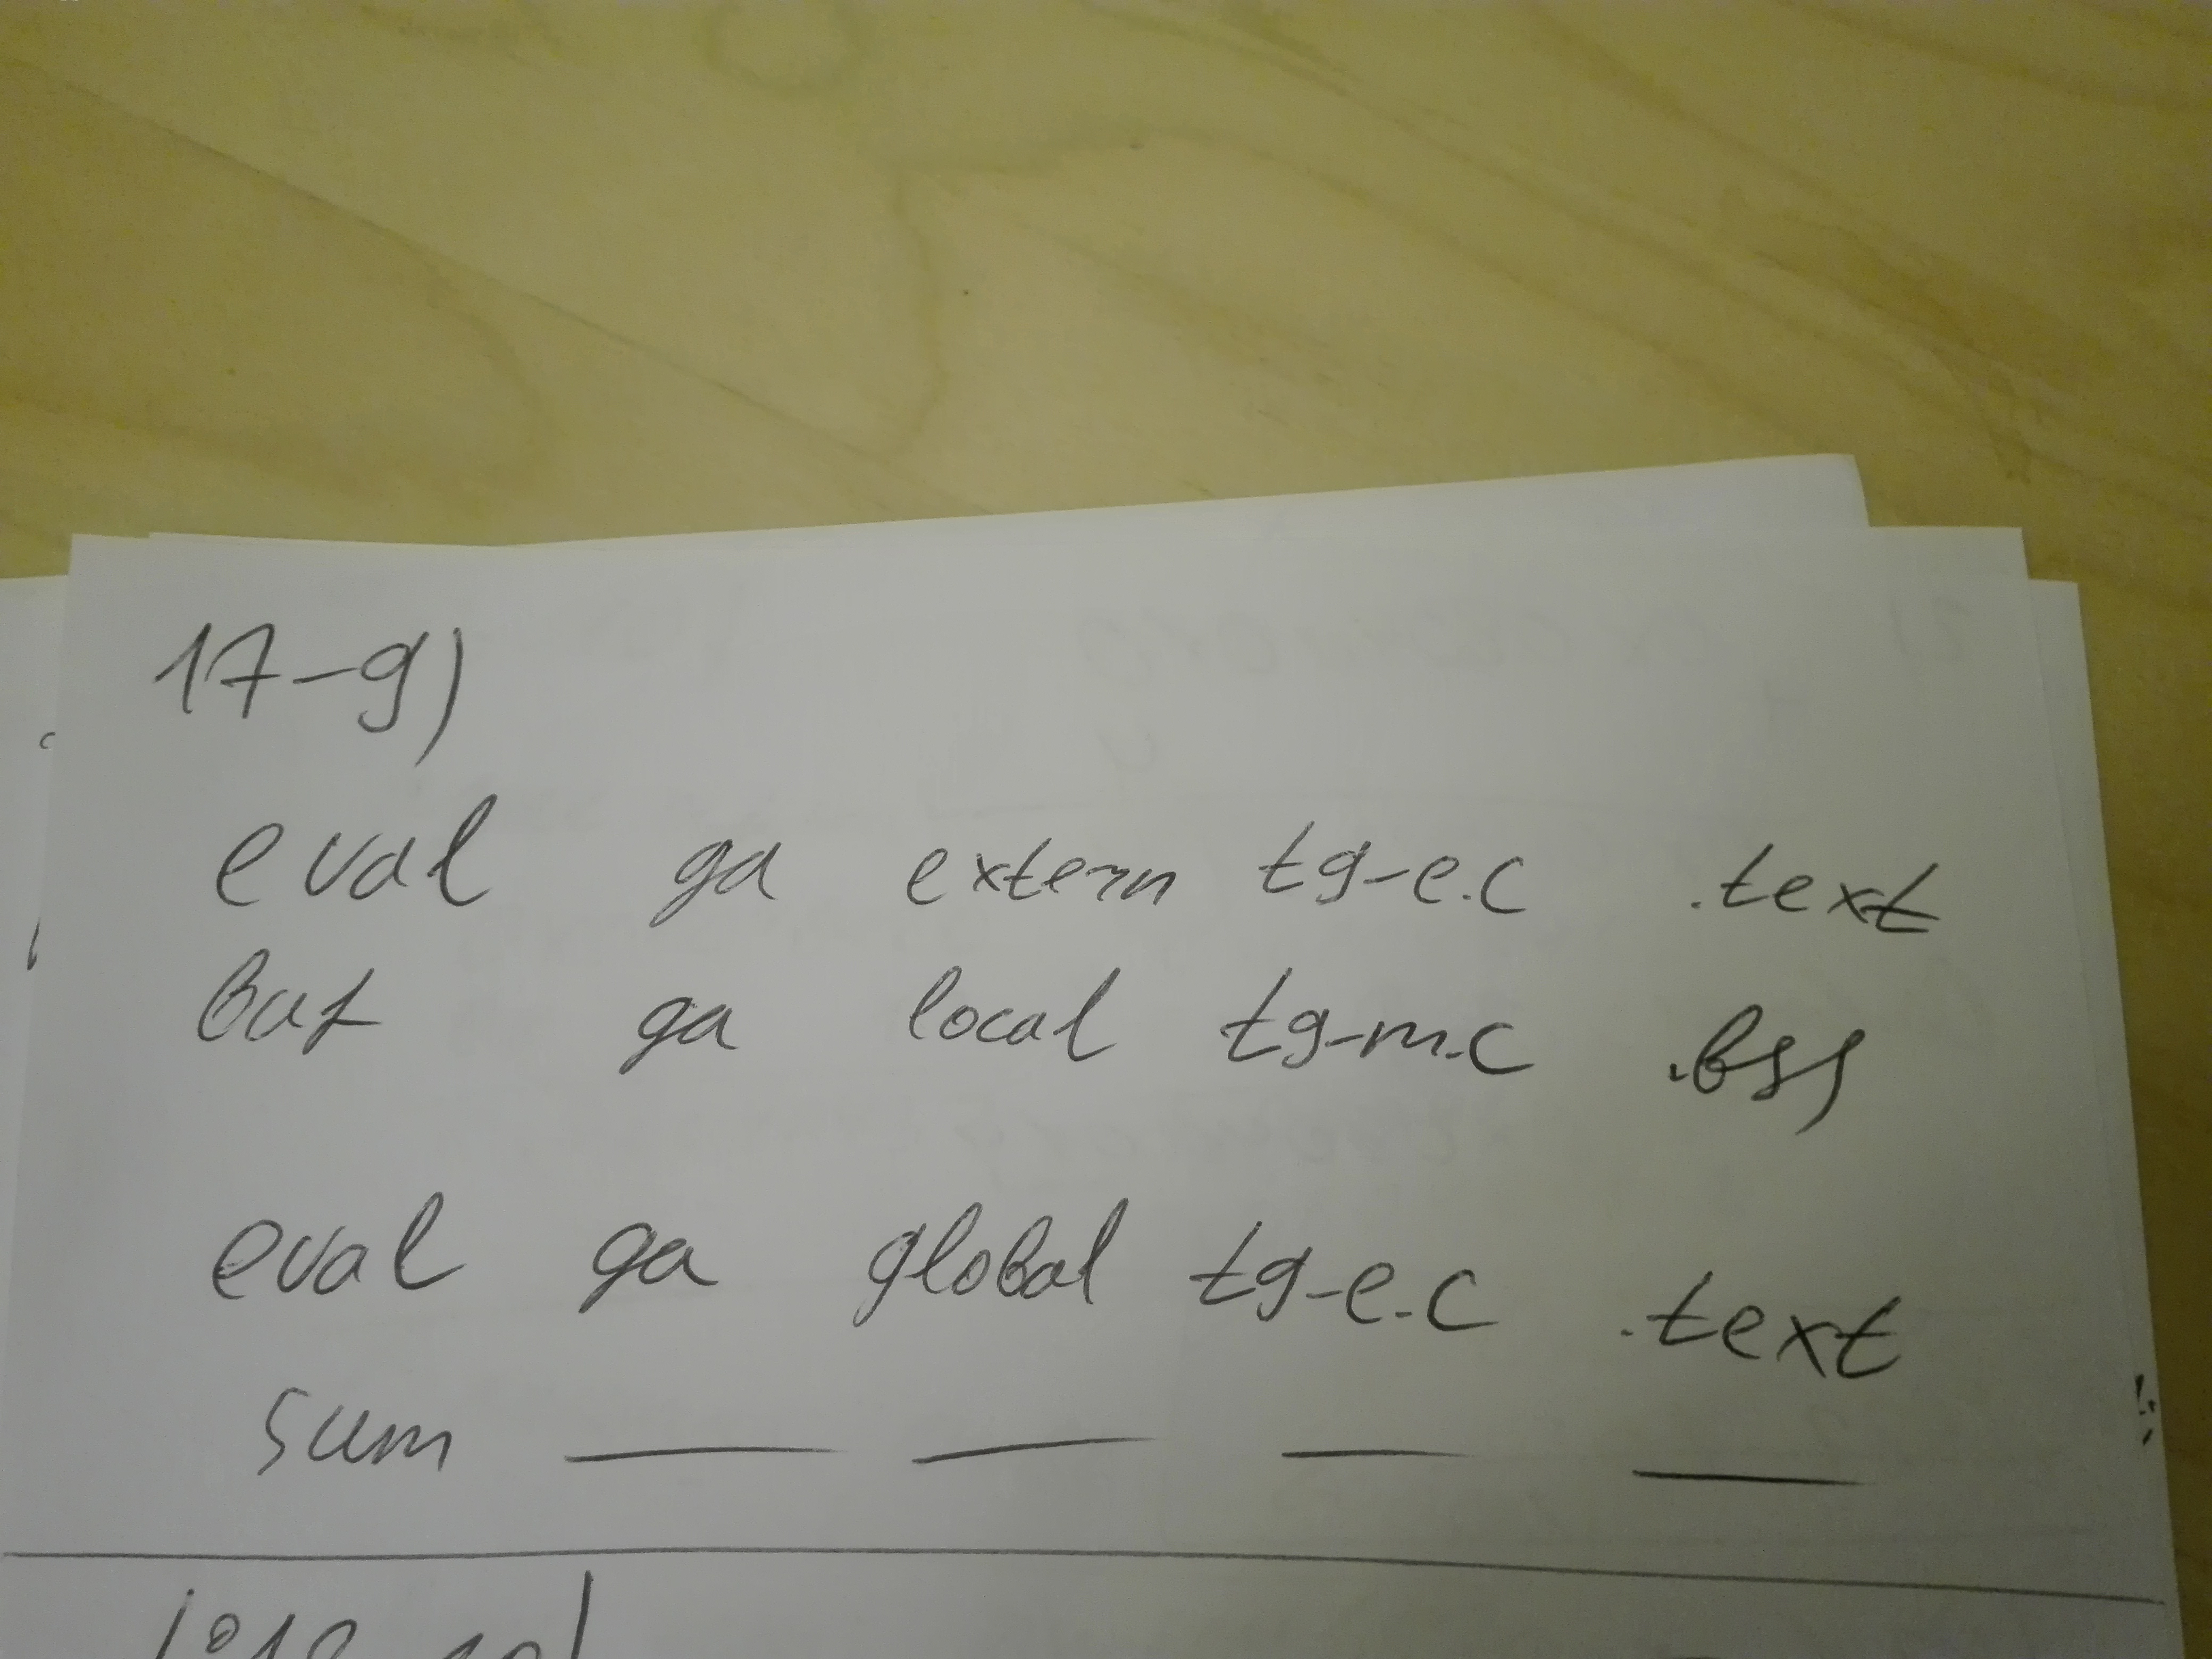 17-g)
eval ga extern tg-e.c .text
buf ga local tg-m.c .bss
eval ga global tg-e.c .text
sum — — — —